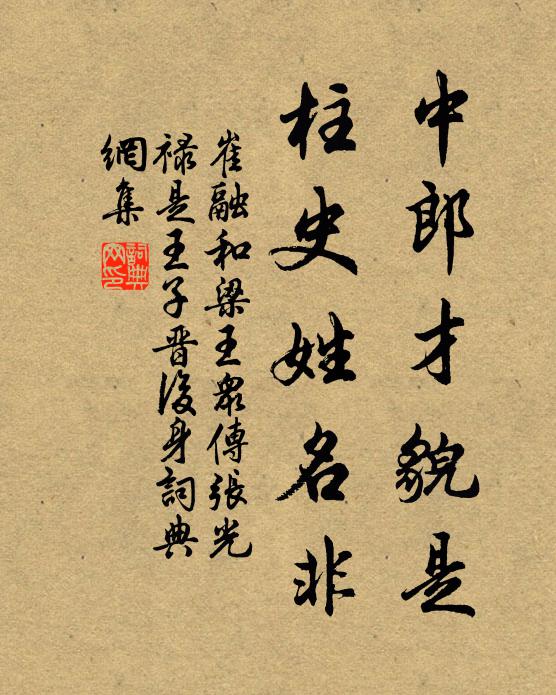 中郎才貌是
柱史姓名非
崔融和梁王眾傳張光
禄是王子晋後身詞典
網集
詞典網印